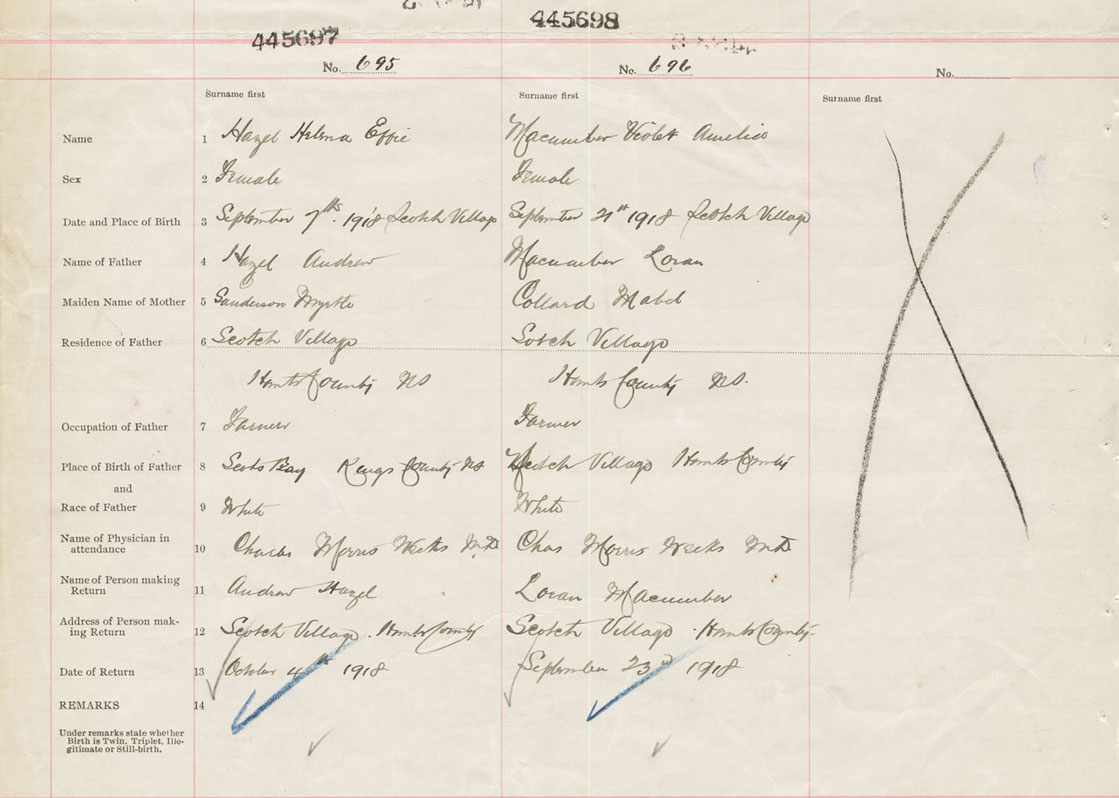 445697
445698
No. 695
No. 696
No.
Surname first
Surname first
Surname first
Name 1 Hazel Helena Effie Macumber Violet Amelia
Sex 2 Female Female
Date and Place of Birth 3 September 7th 1918 Scotch Village September 21st 1918 Scotch Village
Name of Father 4 Hazel Andrew Macumber Loran
Maiden Name of Mother 5 Sanderson Myrtle Collard Mabel
Residence of Father 6 Scotch Village Sotch Village
Hants County NS Hants County NS.
Occupation of Father 7 Farmer Farmer
Place of Birth of Father 8 Scots Bay Kings County NS Scotch Village Hants County
and
Race of Father 9 White White
Name of Physician in
attendance 10 Charles Morris Weeks MD Chas Morris Weeks MD
Name of Person making
Return 11 Andrew Hazel Loran Macumber
Address of Person mak-
ing Return 12 Scotch Village. Hants County Scotch Village. Hants County.
Date of Return 13 October 4th 1918 September 23d 1918
REMARKS 14
Under remarks state whether
Birth is Twin, Triplet, Ille-
gitimate or Still-birth.